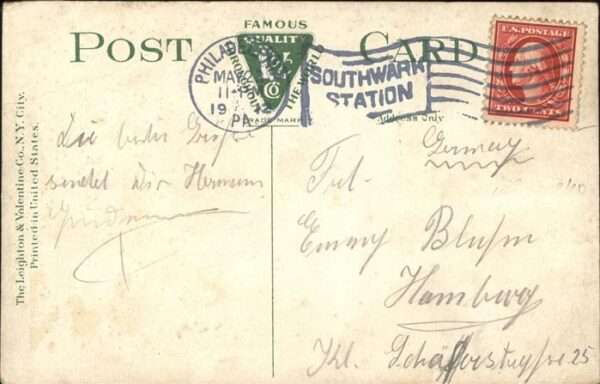 FAMOUS
POST CARD
QUALITY
THE WORLD
CO
TRADE MARK
PHILADELPHIA
MAY
11
19
PA
SOUTHWARK
STATION
U.S. POSTAGE
TWO CENTS
Address Only
The Leighton & Valentine Co., N.Y. City.
Printed in United States.
Die besten Grüße
sendet Dir Hermann
Germany
Frl.
Emmy Bluhm
Hamburg
Kl. Schäferstraße 25